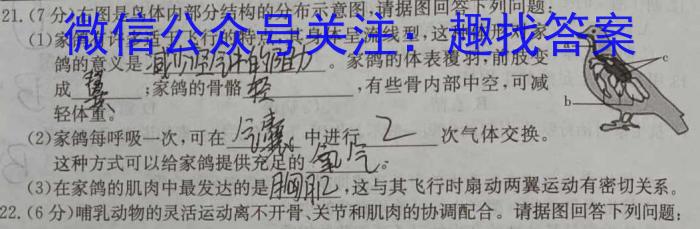 21.(7分)右图是鸟体内部分结构的分布示意图,请据图回答下列问题:
微信公众号关注:趣找答案
(1)家 飞行的特 流线型,这 家
鸽的意义是减少空气中的阻力。家鸽的体表覆羽,前肢变
成翼;家鸽的骨骼轻,有些骨内部中空,可减
轻体重。
(2)家鸽每呼吸一次,可在气囊中进行2次气体交换。
这种方式可以给家鸽提供充足的氧气。
(3)在家鸽的肌肉中最发达的是胸肌,这与其飞行时扇动两翼运动有密切关系。
22.(6分)哺乳动物的灵活运动离不开骨、关节和肌肉的协调配合。请据图回答下列问题:
a
c
b